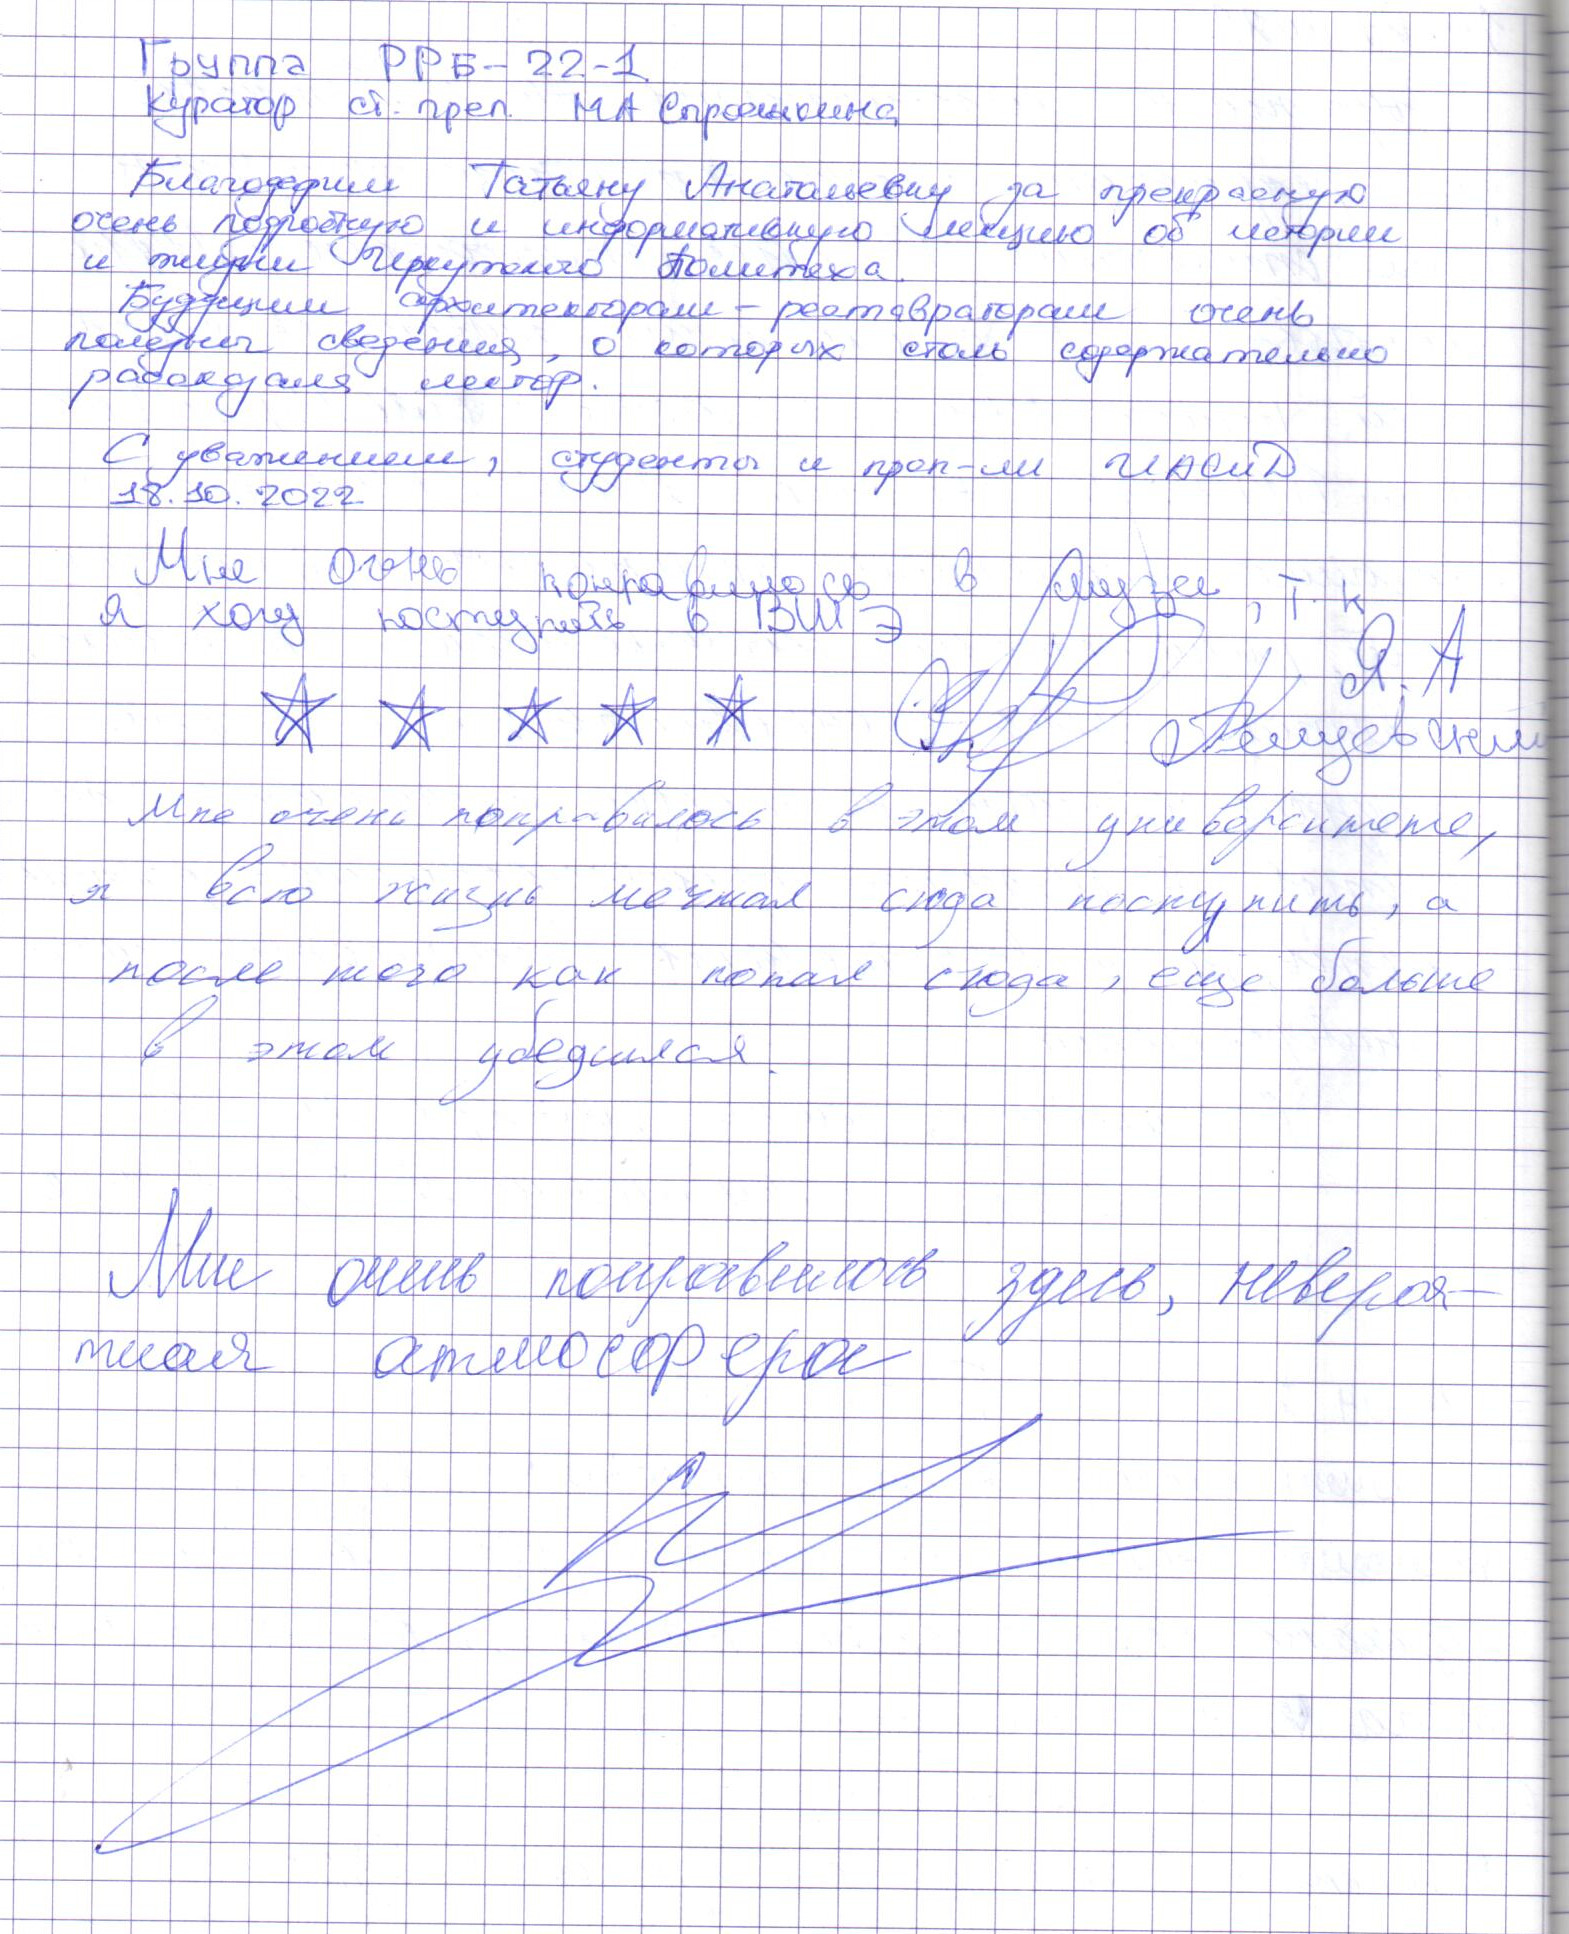 Группа РРБ-22-1
Куратор ст. преп. МА
Благодарим Татьяну Анатольевну за прекрасную
очень подробную и информативную лекцию об истории
и жизни Иркутского Политеха.
Будущим архитекторам-реставраторам очень
полезны сведения, о которых столь содержательно
рассказала лектор.
С уважением, студенты и преп-ли ИАСиД
18.10.2022
Мне очень понравилось в музее, т.к
я хочу поступить в ВШЭ
Я.А
Мне очень понравилось в этом университете,
я всю жизнь мечтал сюда поступить, а
после того как попал сюда, еще больше
в этом убедился.
Мне очень понравилось здесь, невероя-
тная атмосфера